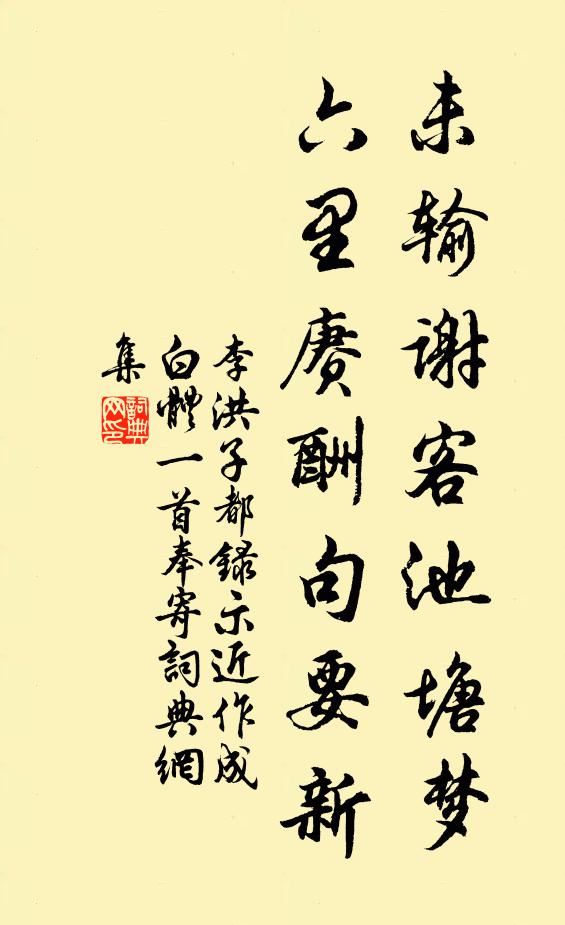 未输谢客池塘梦
六里赓酬句要新
李洪子都録示近作成
白體一首奉寄詞典網
集
詞典
网印